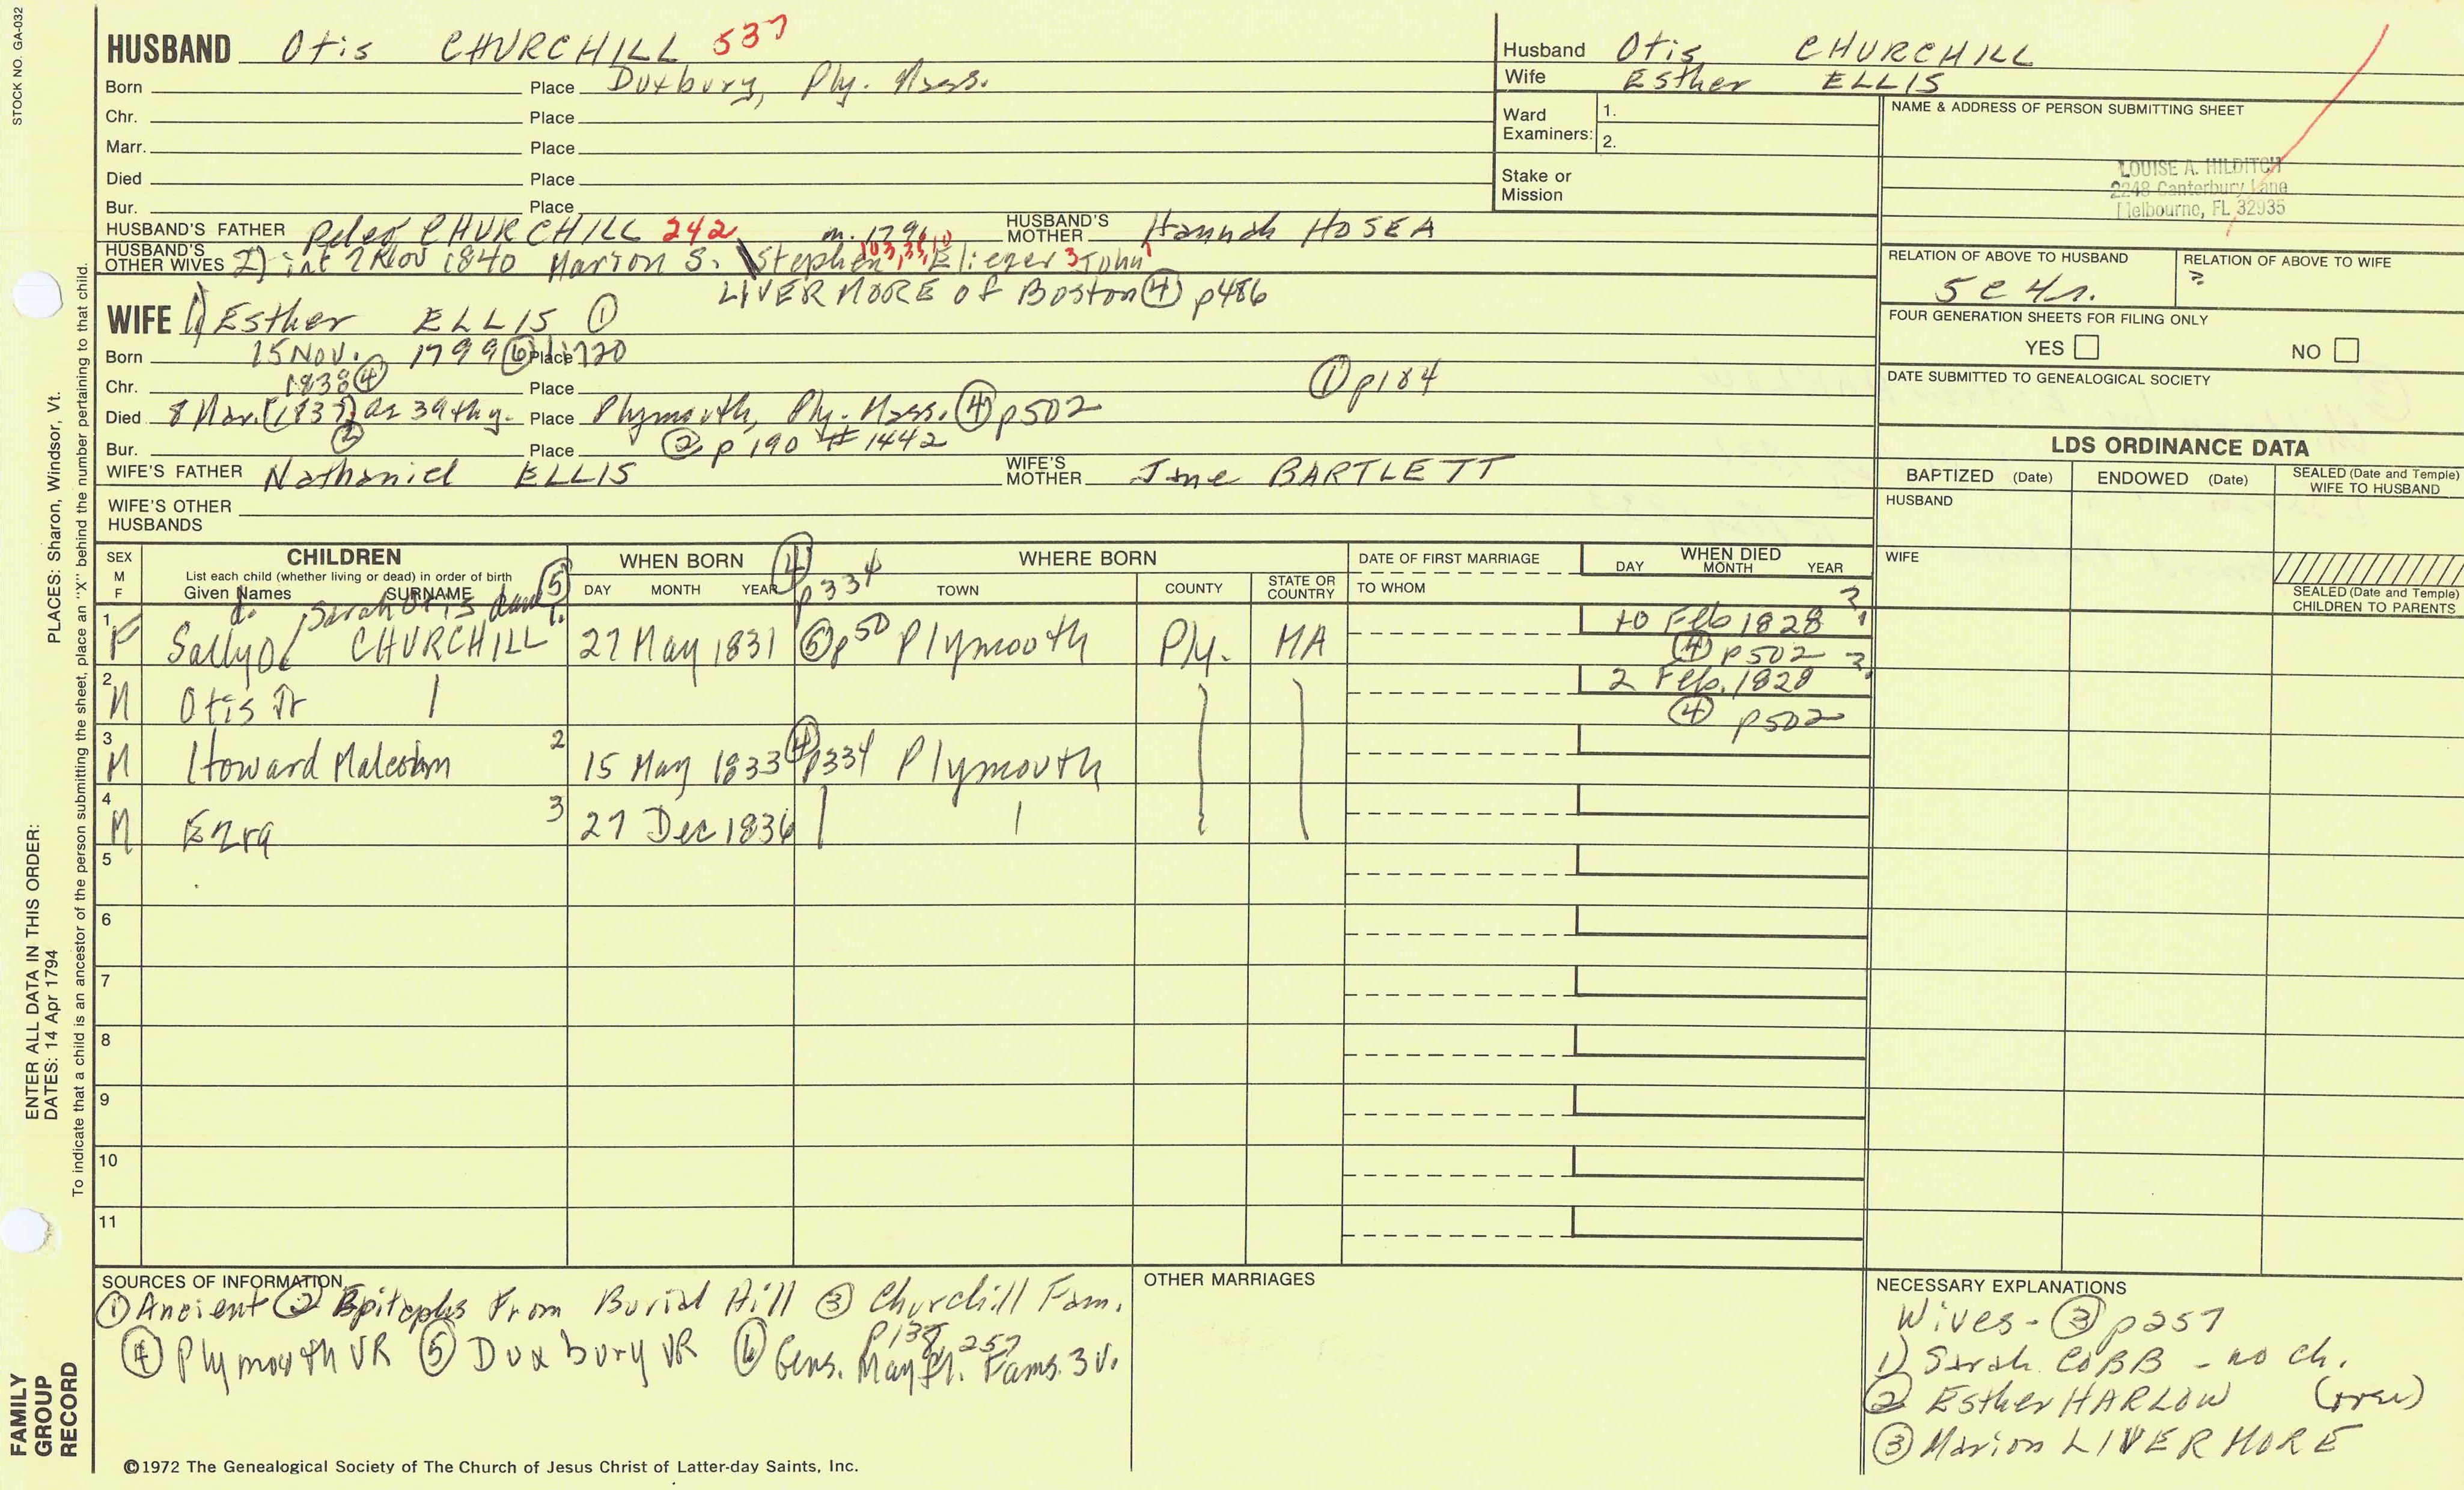 STOCK NO. GA-032
HUSBAND Otis CHURCHILL 537
Born Place Duxbury, Ply. Mass.
Chr. Place
Marr. Place
Died Place
Bur. Place
HUSBAND'S FATHER Peleg CHURCHILL 242 m. 1796 HUSBAND'S MOTHER Hannah HOSEA
HUSBAND'S OTHER WIVES 2) int Nov 1840 Marion S. \Stephen 103, 33, 10 Eliezer 3 John 1
LIVERMORE of Boston ④ p486
WIFE 1) Esther ELLIS ①
Born 15 Nov. 1799 ⑥ Place
Chr. 1838 ④ Place ① p184
Died 8 Mar. (1837) ae 39th y. Place Plymouth, Ply. Mass. ④ p502
③
Bur. Place ② p 190 # 1442
WIFE'S FATHER Nathaniel ELLIS WIFE'S MOTHER Jane BARTLETT
WIFE'S OTHER HUSBANDS
Husband Otis CHURCHILL
Wife Esther ELLIS
Ward Examiners: 1.
2.
Stake or Mission
NAME & ADDRESS OF PERSON SUBMITTING SHEET
LOUISE A. HILDITCH
2248 Canterbury Lane
Melbourne, FL 32935
RELATION OF ABOVE TO HUSBAND RELATION OF ABOVE TO WIFE
5 c 4r. ?
FOUR GENERATION SHEETS FOR FILING ONLY
YES NO
DATE SUBMITTED TO GENEALOGICAL SOCIETY
LDS ORDINANCE DATA
BAPTIZED (Date) ENDOWED (Date) SEALED (Date and Temple) WIFE TO HUSBAND
HUSBAND
WIFE
SEALED (Date and Temple) CHILDREN TO PARENTS
SEX M F CHILDREN WHEN BORN ④ p334 WHERE BORN DATE OF FIRST MARRIAGE WHEN DIED
List each child (whether living or dead) in order of birth
Given Names SURNAME ⑤ DAY MONTH YEAR TOWN COUNTY STATE OR COUNTRY TO WHOM DAY MONTH YEAR
d. Sarah Otis
1 F Sally O. CHURCHILL 1. 27 May 1831 ⑤ p50 Plymouth Ply. MA 10 Feb 1828 ?
④ p502 ?
2 M Otis Jr 2 Feb. 1828
④ p502
3 M Howard Malcolm 2 15 May 1833 ④ p334 Plymouth
4 M Ezra 3 27 Dec 1836
5
6
7
8
9
10
11
SOURCES OF INFORMATION
① Ancient ② Epitaphs From Burial Hill ③ Churchill Fam.
p138, 257
④ Plymouth VR ⑤ Duxbury VR ⑥ Gens. Mayfl. Fams. 3 v.
OTHER MARRIAGES
NECESSARY EXPLANATIONS
Wives - ③ p257
1) Sarah COBB - no ch.
② Esther HARLOW (over)
③ Marion LIVERMORE
©1972 The Genealogical Society of The Church of Jesus Christ of Latter-day Saints, Inc.
FAMILY GROUP RECORD
ENTER ALL DATA IN THIS ORDER:
DATES: 14 Apr 1794
PLACES: Sharon, Windsor, Vt.
To indicate that a child is an ancestor of the person submitting the sheet, place an "X" behind the number pertaining to that child.